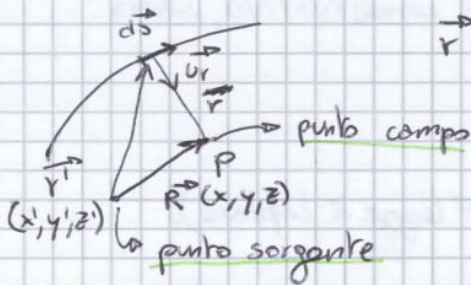 ds r
ur
r
punto campo
r' P
(x',y',z') R (x,y,z)
punto sorgente